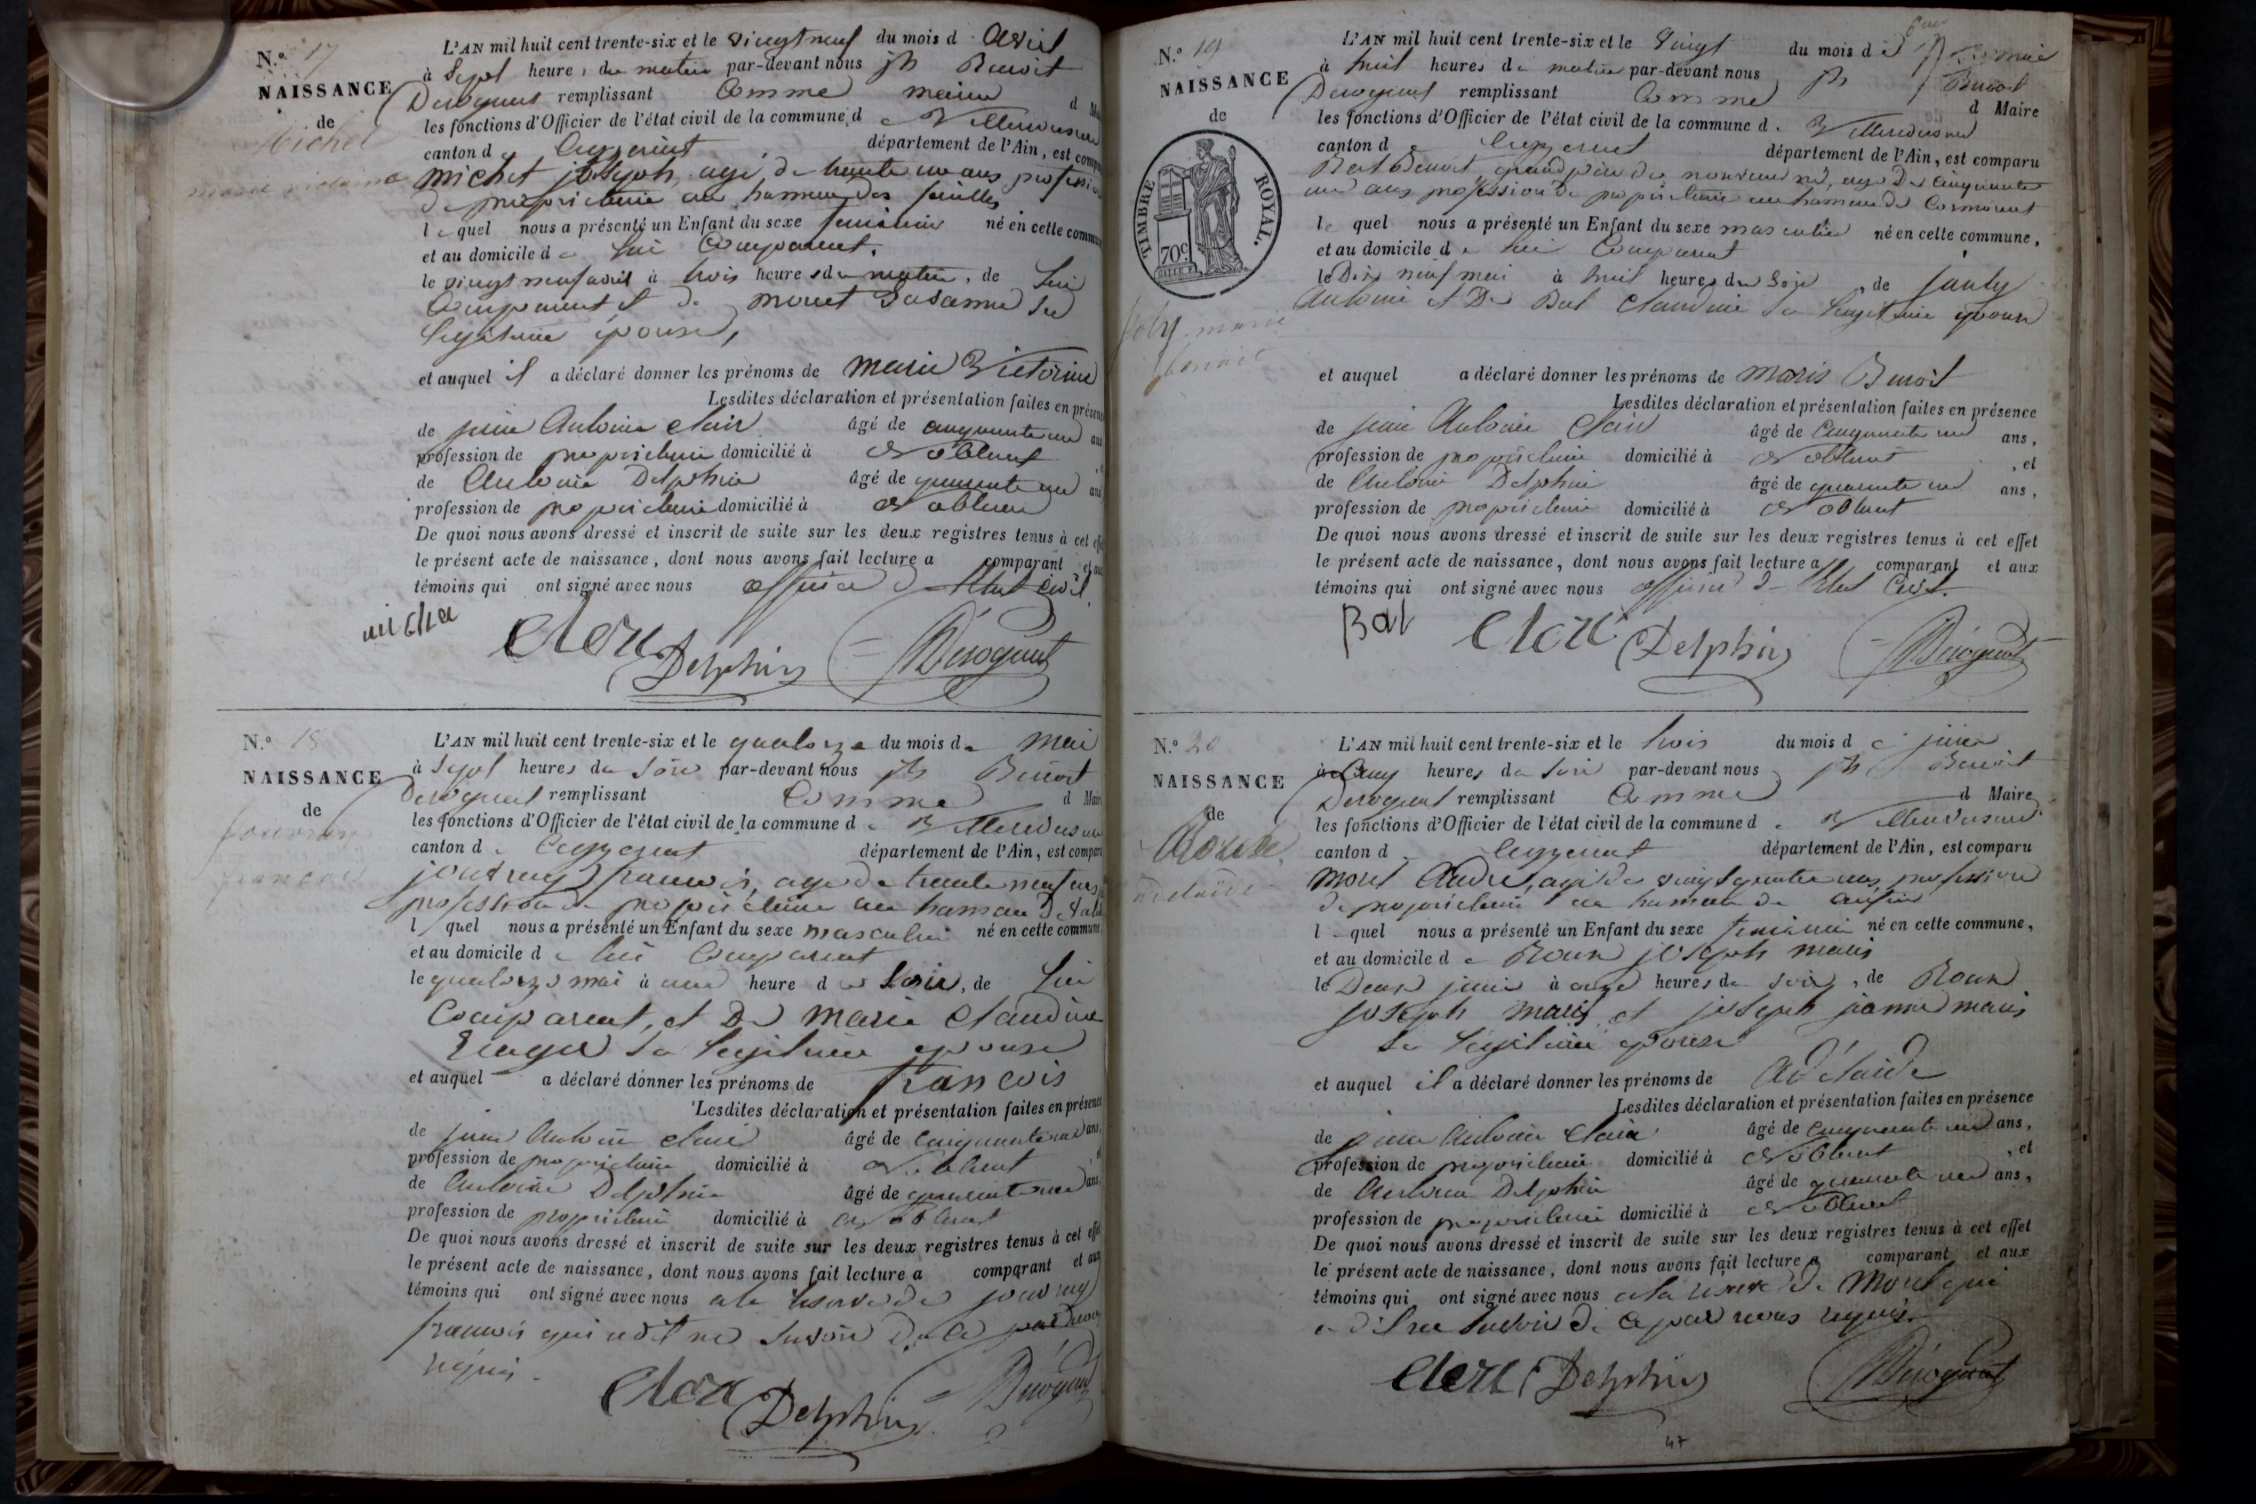 N.o 17
NAISSANCE
de
Michel
marie victorine
L'AN mil huit cent trente-six et le vingt neuf du mois d avril
à Sept heures du matin par-devant nous jh Benoit
Derognat remplissant comme maire d Maire
les fonctions d'Officier de l'état civil de la commune d e Villemusard
canton d e département de l'Ain, est comparu
michel joseph, agé de trente un ans profession
de propriétaire au hameau des feuilles
lequel nous a présenté un Enfant du sexe feminin né en cette commune
et au domicile d e lui Comparant.
le vingt neuf avril à trois heures du matin, de lui
Comparant et de moret Susanne sa
legitime épouse,
et auquel il a déclaré donner les prénoms de marie Victorine
Lesdites déclaration et présentation faites en présence
de Antoine clair âgé de cinquante un ans
profession de propriétaire domicilié à
de Antoine Delphin âgé de quarante un ans
profession de propriétaire domicilié à
De quoi nous avons dressé et inscrit de suite sur les deux registres tenus à cet effet
le présent acte de naissance, dont nous avons fait lecture a comparant et aux
témoins qui ont signé avec nous officier de l'etat civil.
michel Clerc Delphin Derognat
N.o 18
NAISSANCE
de
françois
L'AN mil huit cent trente-six et le quatorze du mois de mai
à Sept heures du soir par-devant nous jh Benoit
Derognat remplissant comme d Maire
les fonctions d'Officier de l'état civil de la commune d e
canton d e département de l'Ain, est comparu
françois, agé de trente neuf ans
profession de propriétaire au hameau de
l quel nous a présenté un Enfant du sexe masculin né en cette commune
et au domicile d e lui Comparant
le quatorze mai à une heure d u soir, de lui
Comparant, et De marie claudine
sa legitime epouse
et auquel a déclaré donner les prénoms de françois
Lesdites déclaration et présentation faites en présence
de Antoine clair âgé de cinquante un ans,
profession de propriétaire domicilié à
de Antoine Delphin âgé de quarante un ans,
profession de propriétaire domicilié à
De quoi nous avons dressé et inscrit de suite sur les deux registres tenus à cet effet
le présent acte de naissance, dont nous avons fait lecture a comparant et aux
témoins qui ont signé avec nous a la reserve de
françois qui a dit ne savoir de ce par nous
requis.
Clerc Delphin Derognat
N.o 19
NAISSANCE
de
TIMBRE ROYAL.
70c
joly marie
benoit
L'AN mil huit cent trente-six et le vingt du mois d e mai
à huit heures du matin par-devant nous jh Benoit
Derognat remplissant comme d Maire
les fonctions d'Officier de l'état civil de la commune d e
canton d e département de l'Ain, est comparu
Bal Benoit, grand père du nouveau né, agé de cinquante
un ans profession de propriétaire au hameau de Cormorent
le quel nous a présenté un Enfant du sexe masculin né en cette commune,
et au domicile d e lui Comparant
le Dix neuf mai à huit heures du soir, de
Antoine et De Bal claudine sa legitime epouse
et auquel a déclaré donner les prénoms de marie Benoit
Lesdites déclaration et présentation faites en présence
de Antoine clair âgé de cinquante un ans,
profession de propriétaire domicilié à , et
de Antoine Delphin âgé de quarante un ans,
profession de propriétaire domicilié à
De quoi nous avons dressé et inscrit de suite sur les deux registres tenus à cet effet
le présent acte de naissance, dont nous avons fait lecture a comparant et aux
témoins qui ont signé avec nous officier de l'etat civil.
Bal Clerc Delphin Derognat
N.o 20
NAISSANCE
de
Adelaide
L'AN mil huit cent trente-six et le trois du mois d e juin
à cinq heures du soir par-devant nous jh Benoit
Derognat remplissant comme d Maire
les fonctions d'Officier de l'état civil de la commune d e
canton d département de l'Ain, est comparu
moret André, agé de vingt quatre ans, profession
de propriétaire au hameau de
l e quel nous a présenté un Enfant du sexe feminin né en cette commune,
et au domicile d e Roux joseph marie
le Deux juin à onze heures du soir, de Roux
joseph marie et joseph jeanne marie
sa legitime epouse
et auquel il a déclaré donner les prénoms de Adelaide
Lesdites déclaration et présentation faites en présence
de Antoine clair âgé de cinquante un ans,
profession de propriétaire domicilié à , et
de Antoine Delphin âgé de quarante un ans,
profession de propriétaire domicilié à
De quoi nous avons dressé et inscrit de suite sur les deux registres tenus à cet effet
le présent acte de naissance, dont nous avons fait lecture a comparant et aux
témoins qui ont signé avec nous a la reserve de Moret qui
a dit ne savoir de ce par nous requis.
Clerc Delphin Derognat
47